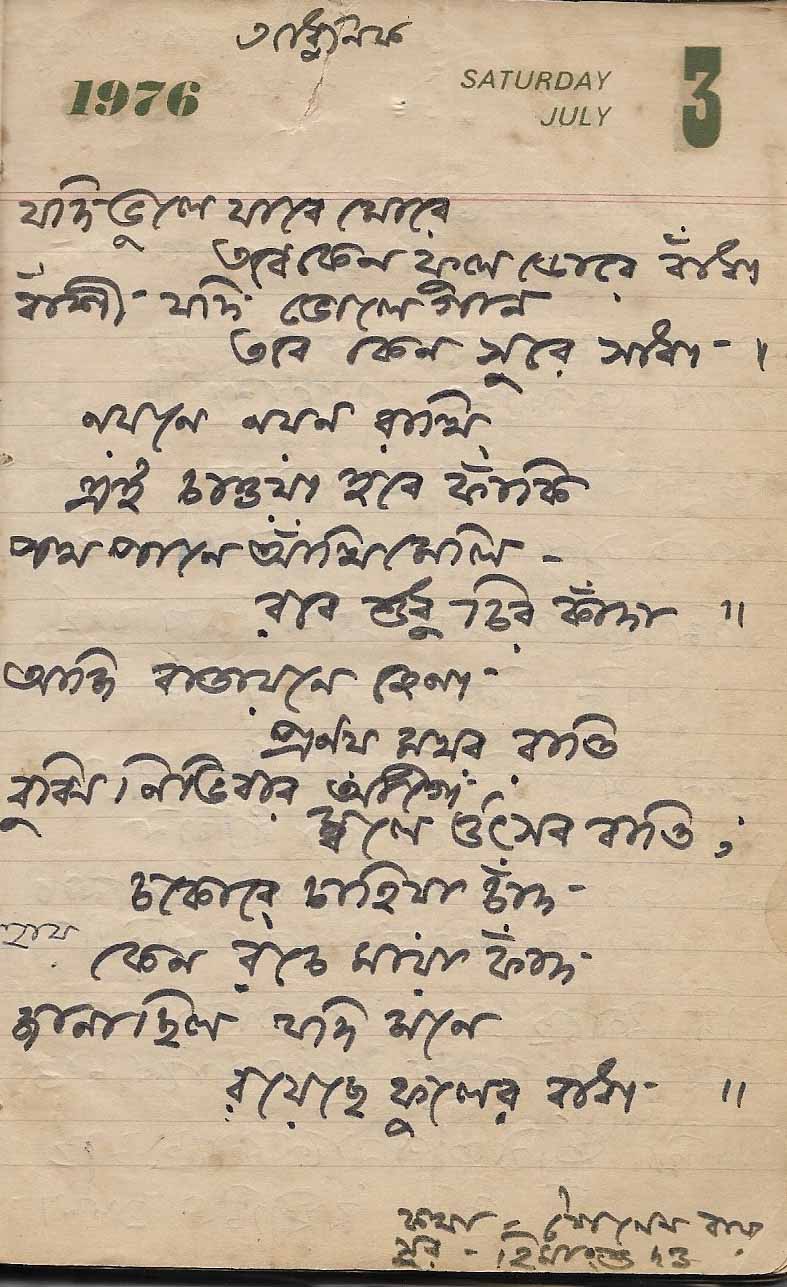 আধুনিক
1976 SATURDAY JULY 3
যদি ভুলে যাবে মোরে
তবে কেন ফুল ডোরে বাঁধা
বাঁশী যদি ভোলে গান
তবে কেন সুরে সাধা ।
নয়নে নয়ন রাখি
এই চাওয়া হবে ফাঁকি
পথ পানে আঁখি মেলি -
রবে শুধু চির কাঁদা ॥
আজি বাতায়নে হেনা
প্রণয় মধুর রাতি
বুঝি নিভিবার আগে
জ্বলে উৎসব বাতি,
চকোরে চাহিয়া চাঁদ
হায় কেন রচে মায়া ফাঁদ
জানা ছিল যদি মনে
রয়েছে ফুলের বাধা ॥
কথা - শৈলেন রায়
সুর - হিমাংশু দত্ত